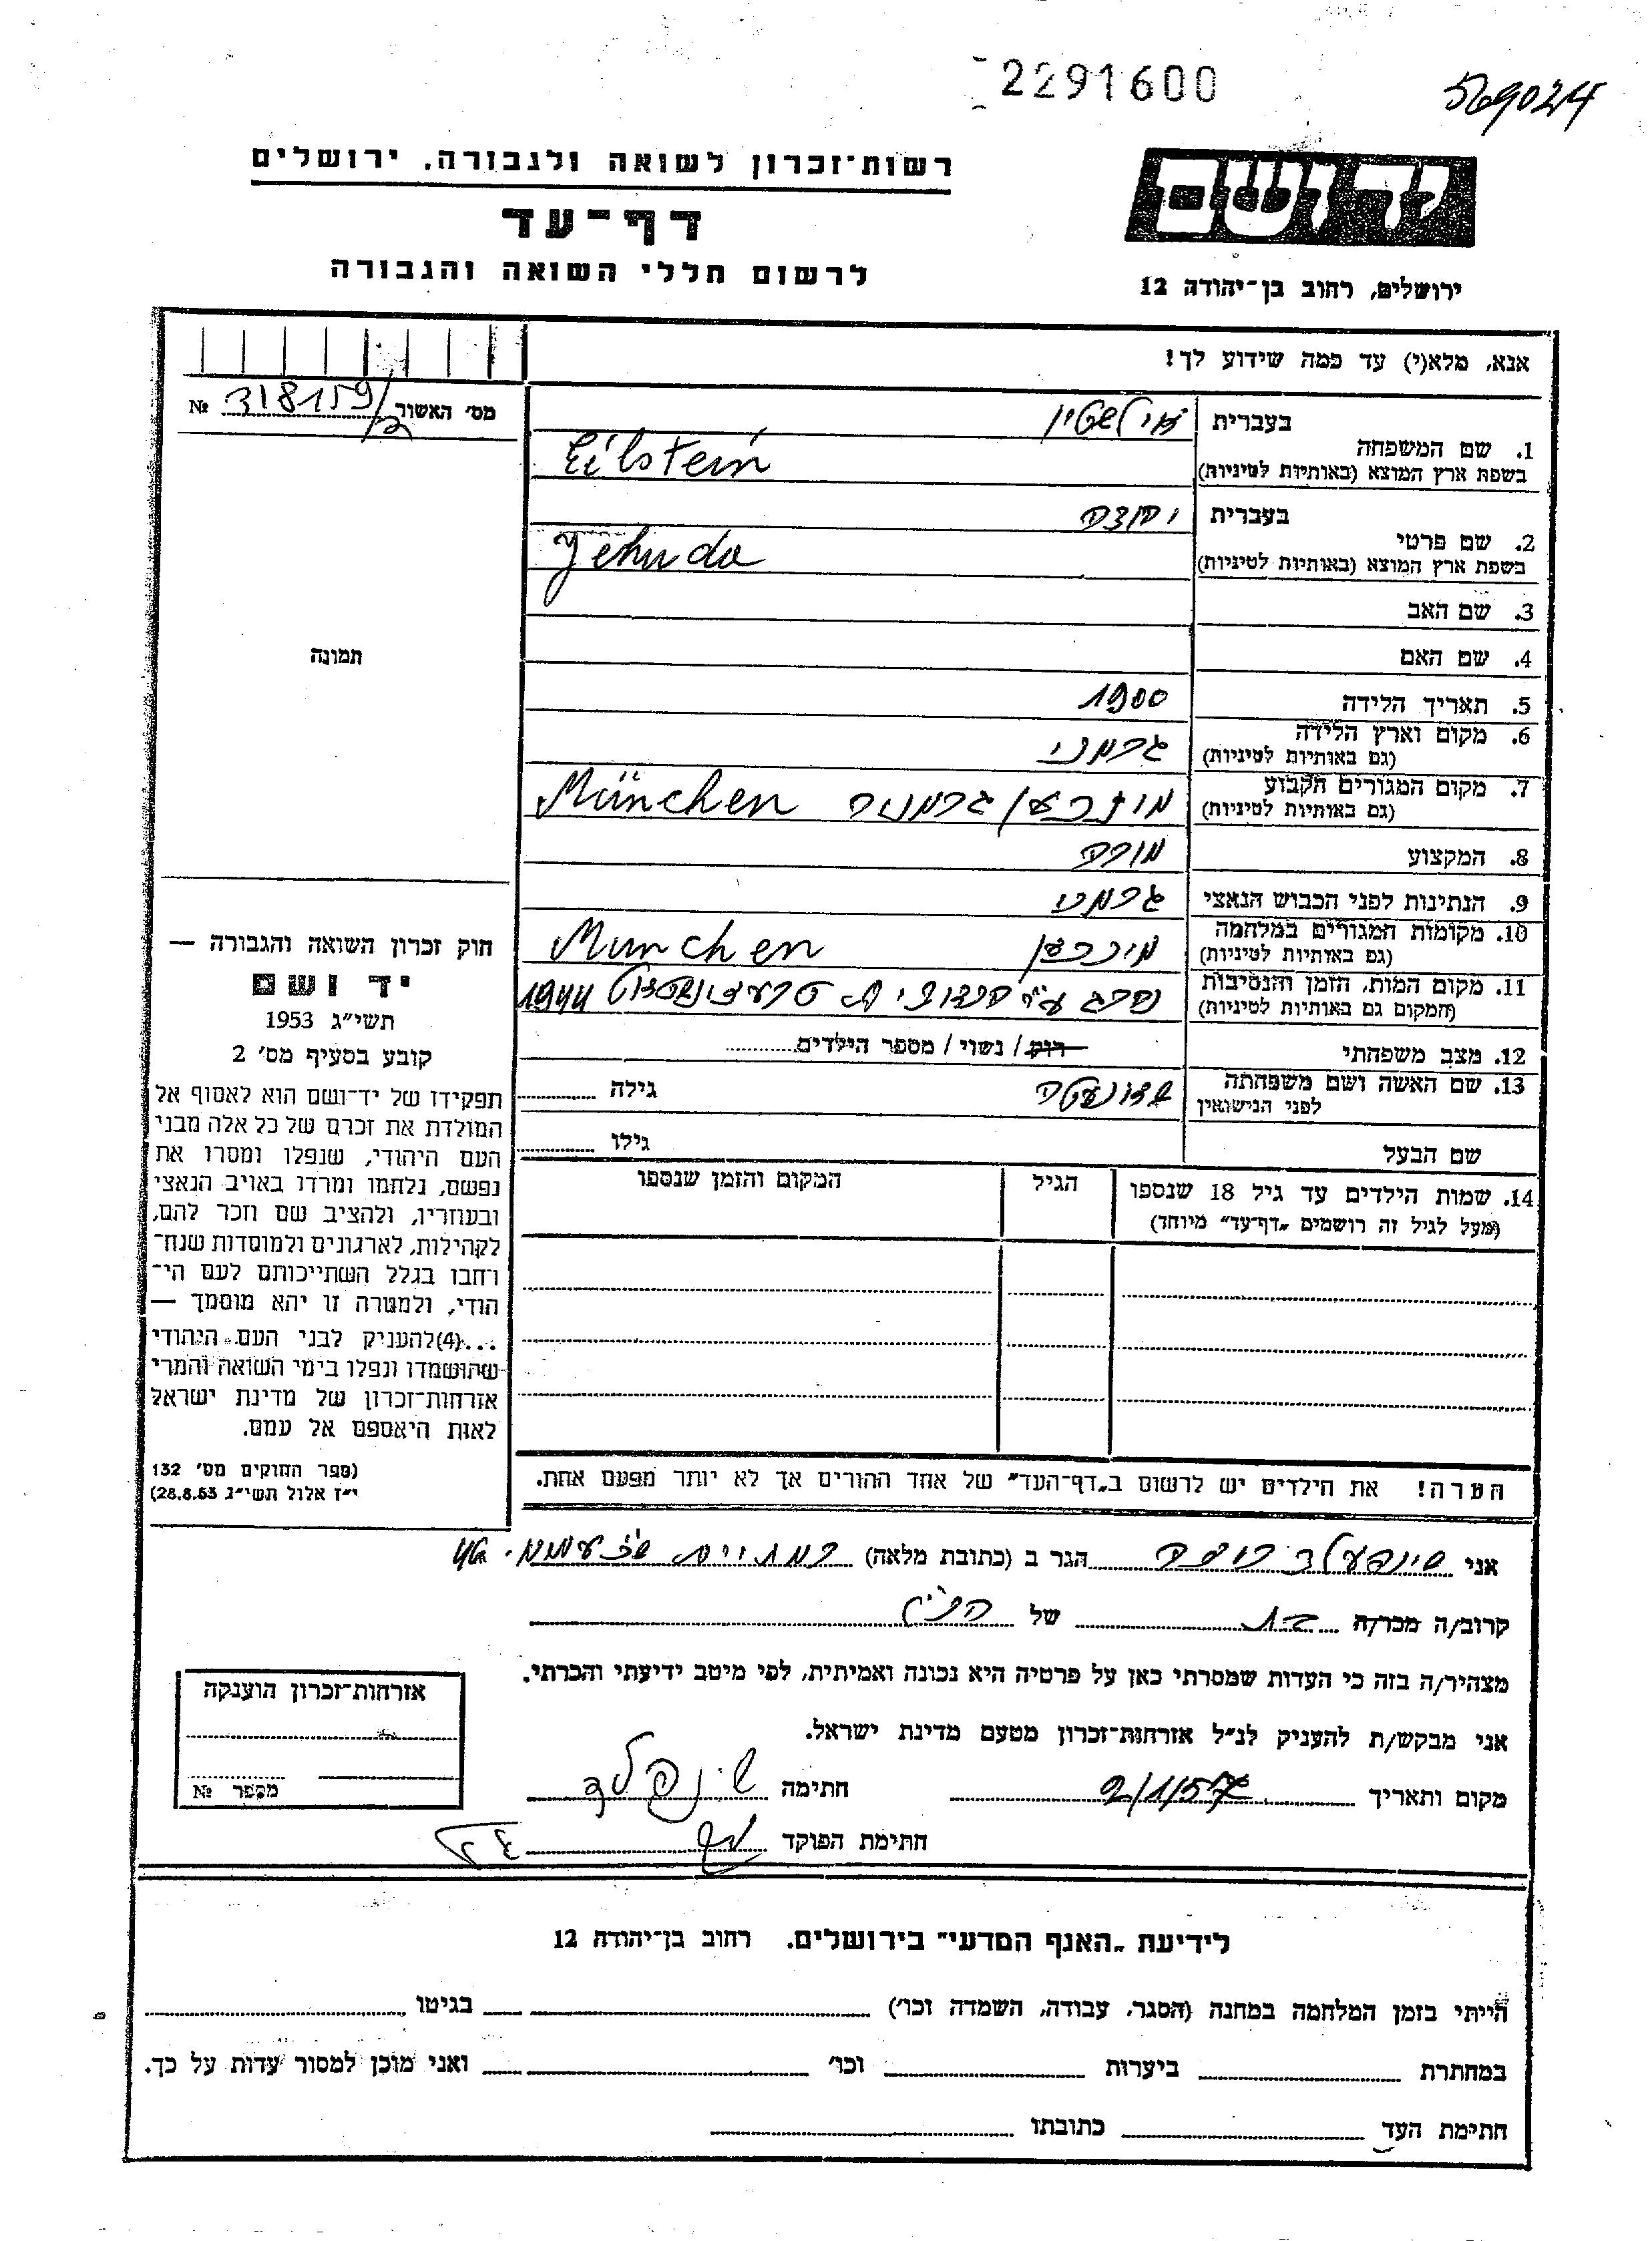 2291600
569024
יד ושם
רשות־זכרון לשואה ולגבורה, ירושלים
דף־עד
לרשום חללי השואה והגבורה
ירושלים, רחוב בן־יהודה 12
אנא, מלא(י) עד כמה שידוע לך!
מס׳ האשור 318159/ №
1. שם המשפחה
בעברית אילשטיין
בשפת ארץ המוצא (באותיות לטיניות) Eilstein
2. שם פרטי
בעברית יהודה
בשפת ארץ המוצא (באותיות לטיניות) Jehuda
3. שם האב
4. שם האם
תמונה
5. תאריך הלידה 1900
6. מקום וארץ הלידה
(גם באותיות לטיניות) גרמני
7. מקום המגורים הקבוע
(גם באותיות לטיניות) גרמניה München
8. המקצוע מורה
9. הנתינות לפני הכבוש הנאצי גרמני
10. מקומות המגורים במלחמה
(גם באותיות לטיניות) מינכען Munchen
11. מקום המות, הזמן והנסיבות
(המקום גם באותיות לטיניות) נהרג ע״י 1944
12. מצב משפחתי רוק / נשוי / מספר הילדים
13. שם האשה ושם משפחתה
לפני הנישואין
גילה
שם הבעל
גילו
14. שמות הילדים עד גיל 18 שנספו
(מעל לגיל זה רושמים „דף־עד״ מיוחד)
הגיל
המקום והזמן שנספו
הערה! את הילדים יש לרשום ב„דף־העד״ של אחד ההורים אך לא יותר מפעם אחת.
חוק זכרון השואה והגבורה —
יד ושם
תשי״ג 1953
קובע בסעיף מס׳ 2
תפקידו של יד־ושם הוא לאסוף אל
המולדת את זכרם של כל אלה מבני
העם היהודי, שנפלו ומסרו את
נפשם, נלחמו ומרדו באויב הנאצי
ובעוזריו, ולהציב שם וזכר להם,
לקהילות, לארגונים ולמוסדות שנח־
רחבו בגלל השתייכותם לעם הי־
הודי, ולמטרה זו יהא מוסמך —
...(4)להעניק לבני העם היהודי
שהושמדו ונפלו בימי השואה והמרי
אזרחות־זכרון של מדינת ישראל
לאות היאספם אל עמם.
(ספר החוקים מס׳ 132
י״ז אלול תשי״ג 28.8.53)
אני הגר ב (כתובת מלאה)
קרוב/ה מכר/ה של הנ״ל
מצהיר/ה בזה כי העדות שמסרתי כאן על פרטיה היא נכונה ואמיתית, לפי מיטב ידיעתי והכרתי.
אני מבקש/ת להעניק לנ״ל אזרחות־זכרון מטעם מדינת ישראל.
מקום ותאריך 2/1/57 חתימה
חתימת הפוקד
אזרחות־זכרון הוענקה
מספר №
לידיעת „האגף המדעי״ בירושלים. רחוב בן־יהודה 12
הייתי בזמן המלחמה במחנה (הסגר, עבודה, השמדה וכו׳) בגיטו
במחתרת ביערות וכו׳ ואני מוכן למסור עדות על כך.
חתימת העד כתובתו